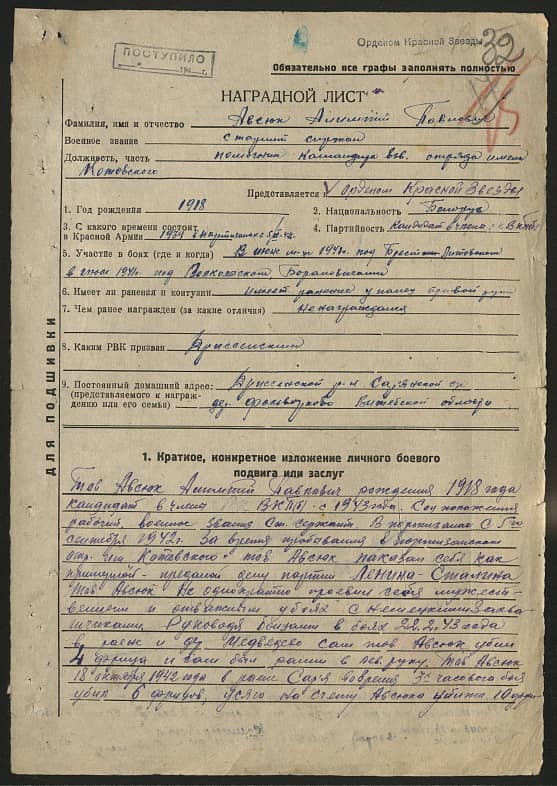 Орденом Красной Звезды
32
ПОСТУПИЛО
194 г.
Обязательно все графы заполнять полностью
НАГРАДНОЙ ЛИСТ
Фамилия, имя и отчество Авсюк Алимпий Павлович
Военное звание старший сержант
Должность, часть помощник командира взв. отряда имени
Котовского
Представляется к орденом Красной Звезды
1. Год рождения 1918
2. Национальность Белорус
3. С какого времени состоит
в Красной Армии 1939
4. Партийность Кандидат в члены ВКП(б)
5. Участие в боях (где и когда) В июне 1941г. под Брестом-Литовском
в июле 1941г. под Барановичами
6. Имеет ли ранения и контузии имеет ранение правой руки
7. Чем ранее награжден (за какие отличия) ненаграждался
8. Каким РВК призван Дриссенским
9. Постоянный домашний адрес: Дриссенской р-н Сарьянской
(представляемого к награж-
дению или его семьи) дер. Витебской области
ДЛЯ ПОДШИВКИ
1. Краткое, конкретное изложение личного боевого
подвига или заслуг
Тов Авсюк Алимпий Павлович рождения 1918 года
кандидат в члены ВКП(б) с 1943 года. Соц положения
рабочий, военное звание Ст. сержант. В партизанах с 5го
сентября 1942г. За время пребывания в партизанском
отр. им Котовского тов Авсюк показал себя как
преданой делу партии Ленина-Сталина
тов Авсюк Не однократно проявил себя мужест-
веным и отважным у боях с Немецкими захва-
тчиками. Руководя в боях 22.2.43 года
в раене д. Медведево сам тов Авсюк убил
4 фрица и сам был ранен в лев. руку. Тов Авсюк
18 октября 1942 года в раене Саря вовремя 3х часового боя
убил 6 фрицов, усяго на счету Авсюка убитых 10